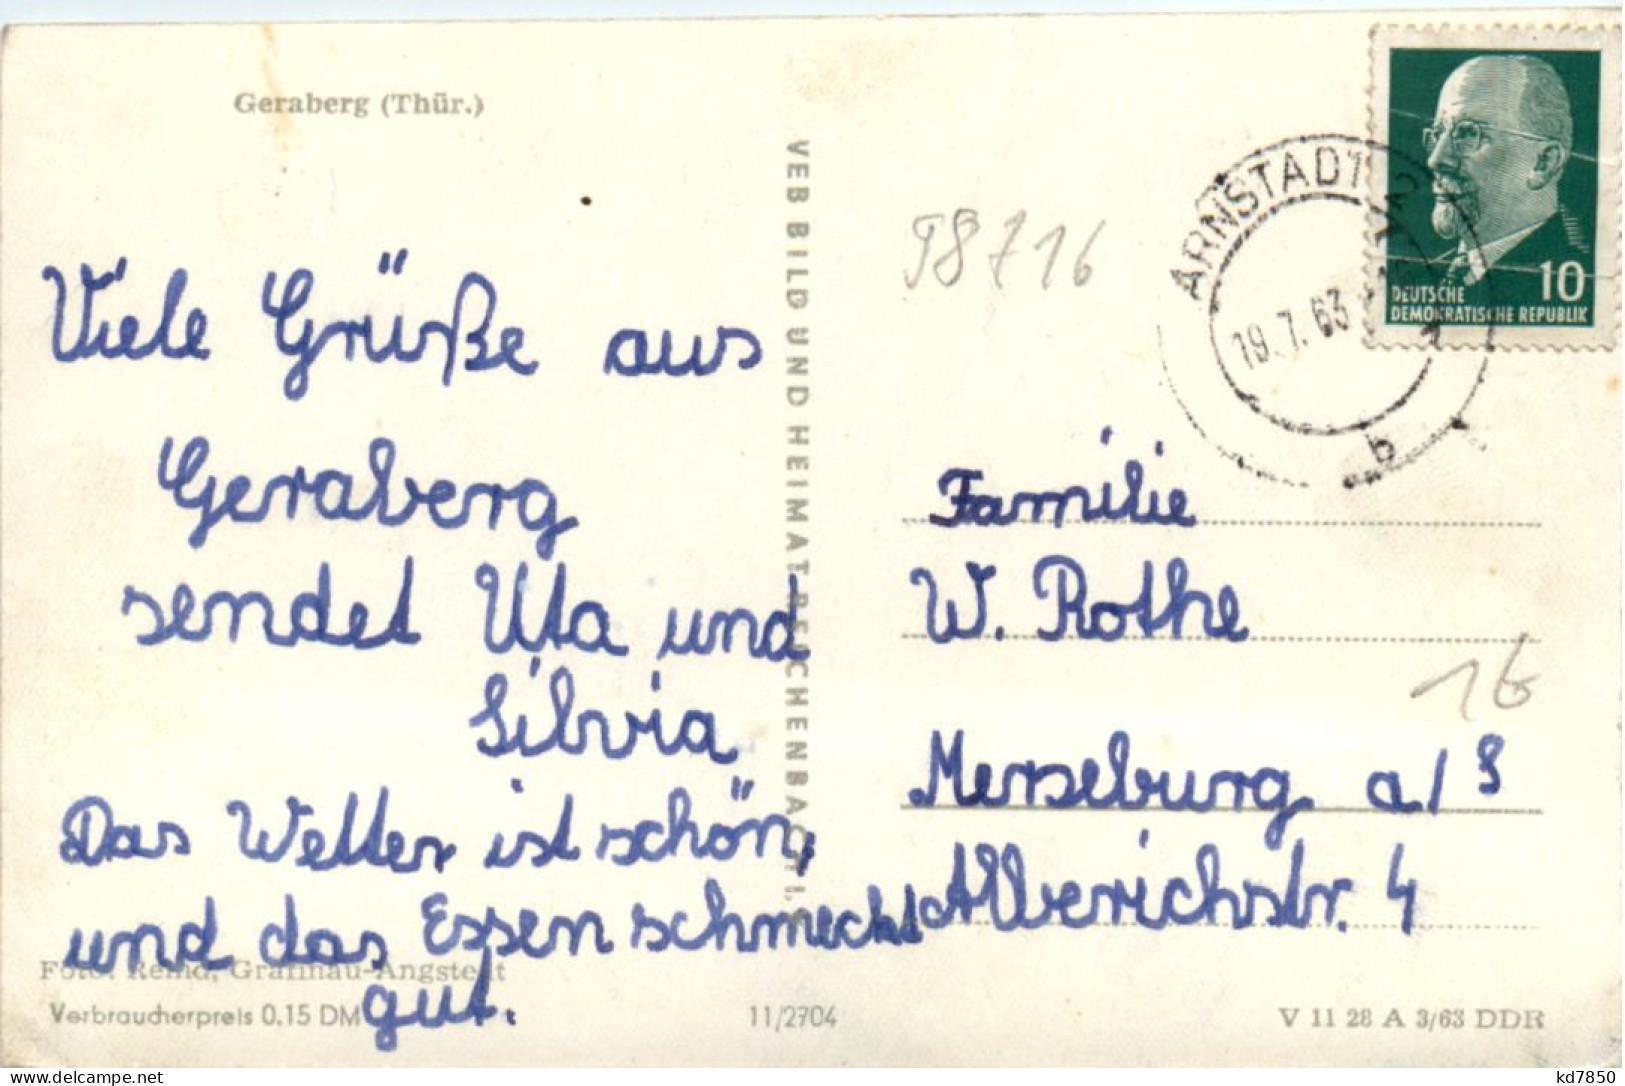 Geraberg (Thür.)
Viele Grüße aus
Geraberg
sendet Uta und
Silvia
Das Wetter ist schön,
und das Essen schmeckt
gut.
Foto: Reind, Gräfinau-Angstedt
Verbraucherpreis 0.15 DM
11/2704
VEB BILD UND HEIMAT REICHENBACH I. V.
T8716
ARNSTADT 2
19.7.63
b
10
DEUTSCHE
DEMOKRATISCHE REPUBLIK
Familie
W. Rothe
16
Merseburg a/S
Alberichstr. 4
V 11 28 A 3/63 DDR
kd7850
www.delcampe.net